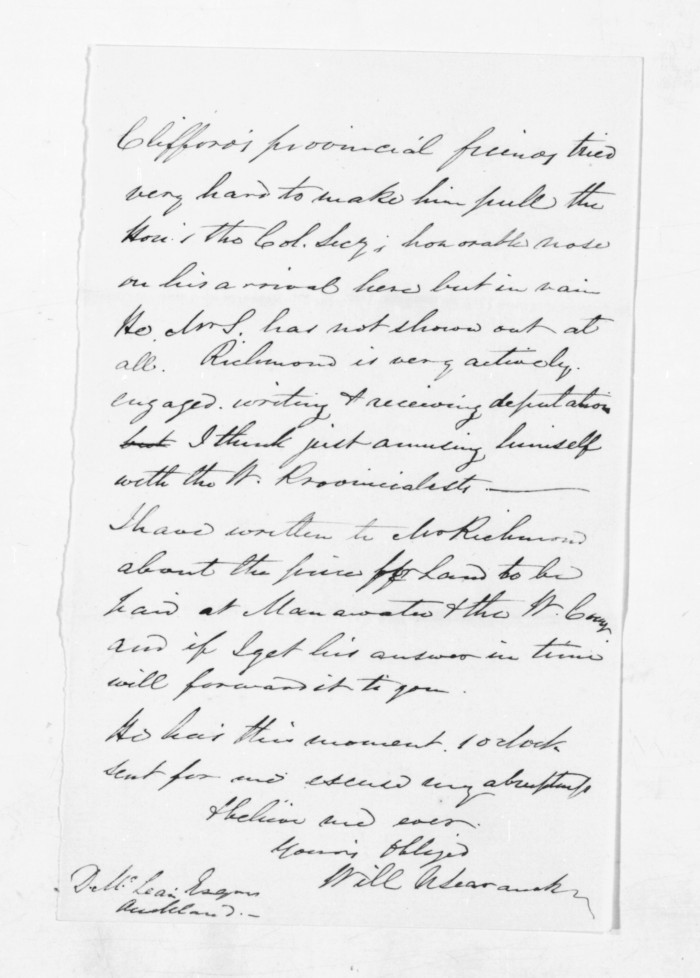 Clifford's provincial friends tried
very hard to make him pull the
Hon. the Col. Secy; honorable nose
on his arrival here but in vain
He, Mr S. has not shown out at
all. Richmond is very actively
engaged. writing & receiving deputation
but I think just amusing himself
with the W. Provincialists —
I have written to Mr Richmond
about the price for Land to be
paid at Manawatu & the W.
and if I get his answer in time
will forward it to you.
He has this moment. 1 oclock
sent for me excuse my abruptness
& believe me ever.
Yours Obliged
Will N Searancke
D. Mc Lean Esquire
Auckland. —